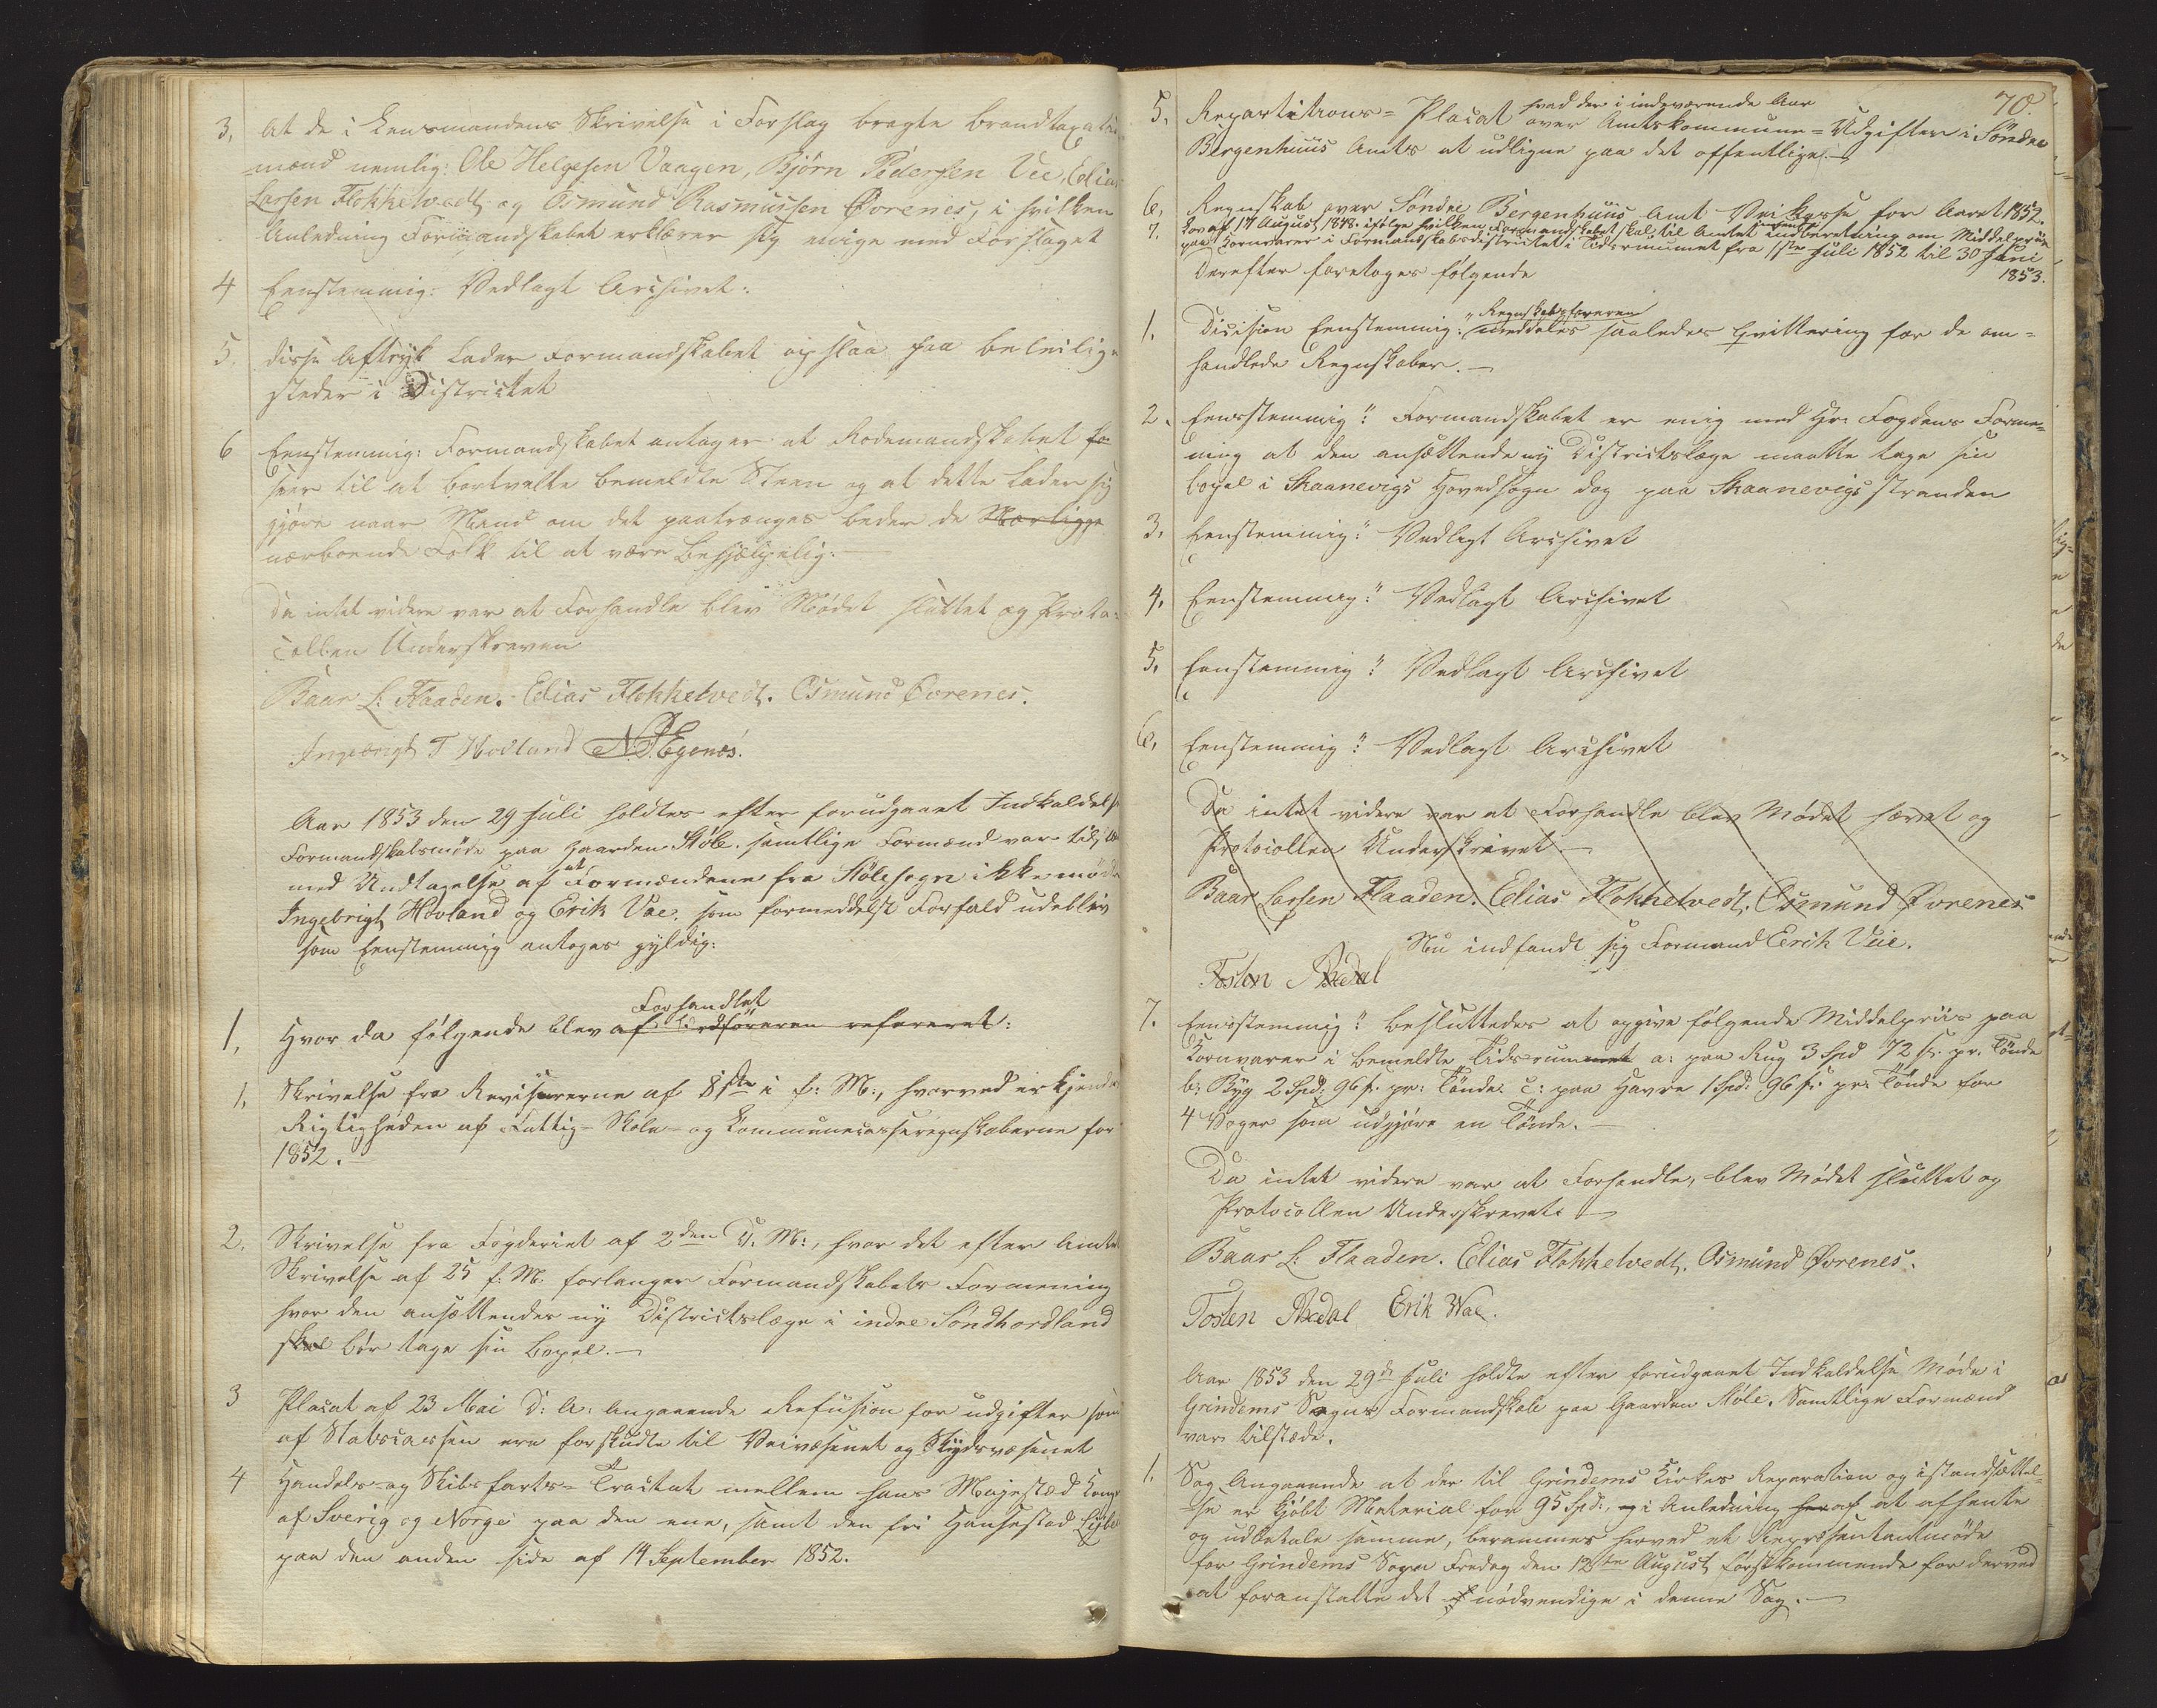 3, At de i Lensmandens Skrivelse i Forslag bragte Brandtaxations
mænd nemlig: Ole Helgesen Vaagen, Bjørn Pedersen Vee, Elias
Larsen Flokketvedt og Osmund Rasmussen Øvrenes, i hvilken
Anledning Formandskabet erklærer sig enige med Forslaget
4 Eenstemmig: Vedlagt Archivet.
5. Disse Aftryk lader Formandskabet opslaa paa beleilige
steder i Districtet
6 Eenstemmig: Formandskabet antager at Rodemandskabet for
seer til at bortvelte bemeldte Steen og at dette lader sig
gjøre naar Mand om det paatrænges beder de Nærligge
nærboende Folk til at være behjælpelig. —
Da intet videre var at Forhandle blev Mødet sluttet og Proto=
collen Underskreven
Baar L: Flaaden. Elias Flokketvedt. Osmund Øvrenes.
Ingebrigt T Hovland N P Egenes.
Aar 1853 den 29 Juli holdtes efter forudgaaet Indkaldelse
Formandskabsmøde paa Gaarden Høle. samtlige Formænd var tilstede
med Undtagelse af at Formændene fra Hølesogn ikke mødte
Ingebrigt Hovland og Erik Vae. som formeddelst Forfald udeblev
som Eenstemmig antoges gyldig:
Forhandlet
1, Hvor da følgende blev af Ordføreren refereret:
1, Skrivelse fra Revisorerne af 8ste i f: M:, hvorved erkjendes
Rigtigheden af Fattig- Skole- og Kommunecasseregnskaberne for
1852. —
2, Skrivelse fra Fogderiet af 2den d. M:, hvor det efter Amtets
Skrivelse af 25 f: M: forlanger Formandskabets Formening
hvor den ansættendes ny Districtslæge i indre Søndhordland
skal bør tage sin bopel. —
3 Placat af 23 Mai d: A: Angaaende Refusion for udgifter som
af Statscassen ere forskudte til Veivæsenet og Skydsvæsenet
4 Handels- og Skibsfarts- Tractat mellem hans Majestæd Kongen
af Sverig og Norge paa den ene, samt den fri Hansestad Lybek
paa den anden side af 14 September 1852.
70.
hvad der i indeværende Aar
5. Repartitions- Placat over Amtskommune- Udgifter i Søndre
Bergenhuus Amts at udligne paa det offentlige. —
6, Regnskab over Søndre Bergenhuus Amt Veikasse for Aaret 1852.
7. Lov af 17 August 1848. ifølge hvilken Formandskabet skal til Amtet Indberetning om Middelpriis
paa Kornvarer i Formandskabsdistrictet i Tidsrummet fra 1ste Juli 1852 til 30 Juni
1853.
Derefter foretoges følgende
Regnskabsføreren
1. Dicision Eenstemmig: meddeles saaledes Qvittering for de om=
handlede Regnskaber. —
2. Eenstemmig: Formandskabet er enig med Hr: Fogdens Forme=
ning at den ansættende ny Districtslæge maatte tage sin
bopel i Skaanevigs Hovedsogn dog paa Skaanevigs stranden
3, Eenstemmig: Vedlagt Archivet
4, Eenstemmig: Vedlagt Archivet
5, Eenstemmig: Vedlagt Archivet
6, Eenstemmig: Vedlagt Archivet
Da intet videre var at Forhandle blev Mødet hævet og
Protocollen Underskrivet. —
Baar Larsen Flaaden. Elias Flokketvedt. Osmund Øvrenes
Nu indfandt sig Formand Erik Vae.
Tosten
7. Eenstemmig: besluttedes at opgive følgende Middelpriis paa
Kornvarer i bemeldte Tidsrummet a: paa Rug 3 Spd 72 s. pr. Tønde
b: Byg 2 Spd: 96 s. pr: Tønde. c: paa Havre 1 Spd: 96 s. pr: Tønde for
4 Voger som udgjøre en Tønde. —
Da intet videre var at Forhandle, blev Mødet sluttet og
Protocollen Underskrevet. —
Baar L: Flaaden. Elias Flokketvedt. Osmund Øvrenes.
Tosten Erik Wae.
Aar 1853 den 29de Juli holdte efter forudgaaet Indkaldelse Møde i
Grindems Sogns Formandskab paa Gaarden Høle. Samtlige Formænd
var tilstæde.
1. Sag Angaaende at der til Grindems Kirkes Reparation og istandsættel=
se er kjøbt Material for 95 Spd:, og i Anledning her af at afhente
og udbetale samme, berammes herved et Repræsentantmøde
for Grindems Sogn Fredag den 12te August førstkommende for derved
at foranstalte det nødvendige i denne Sag. —